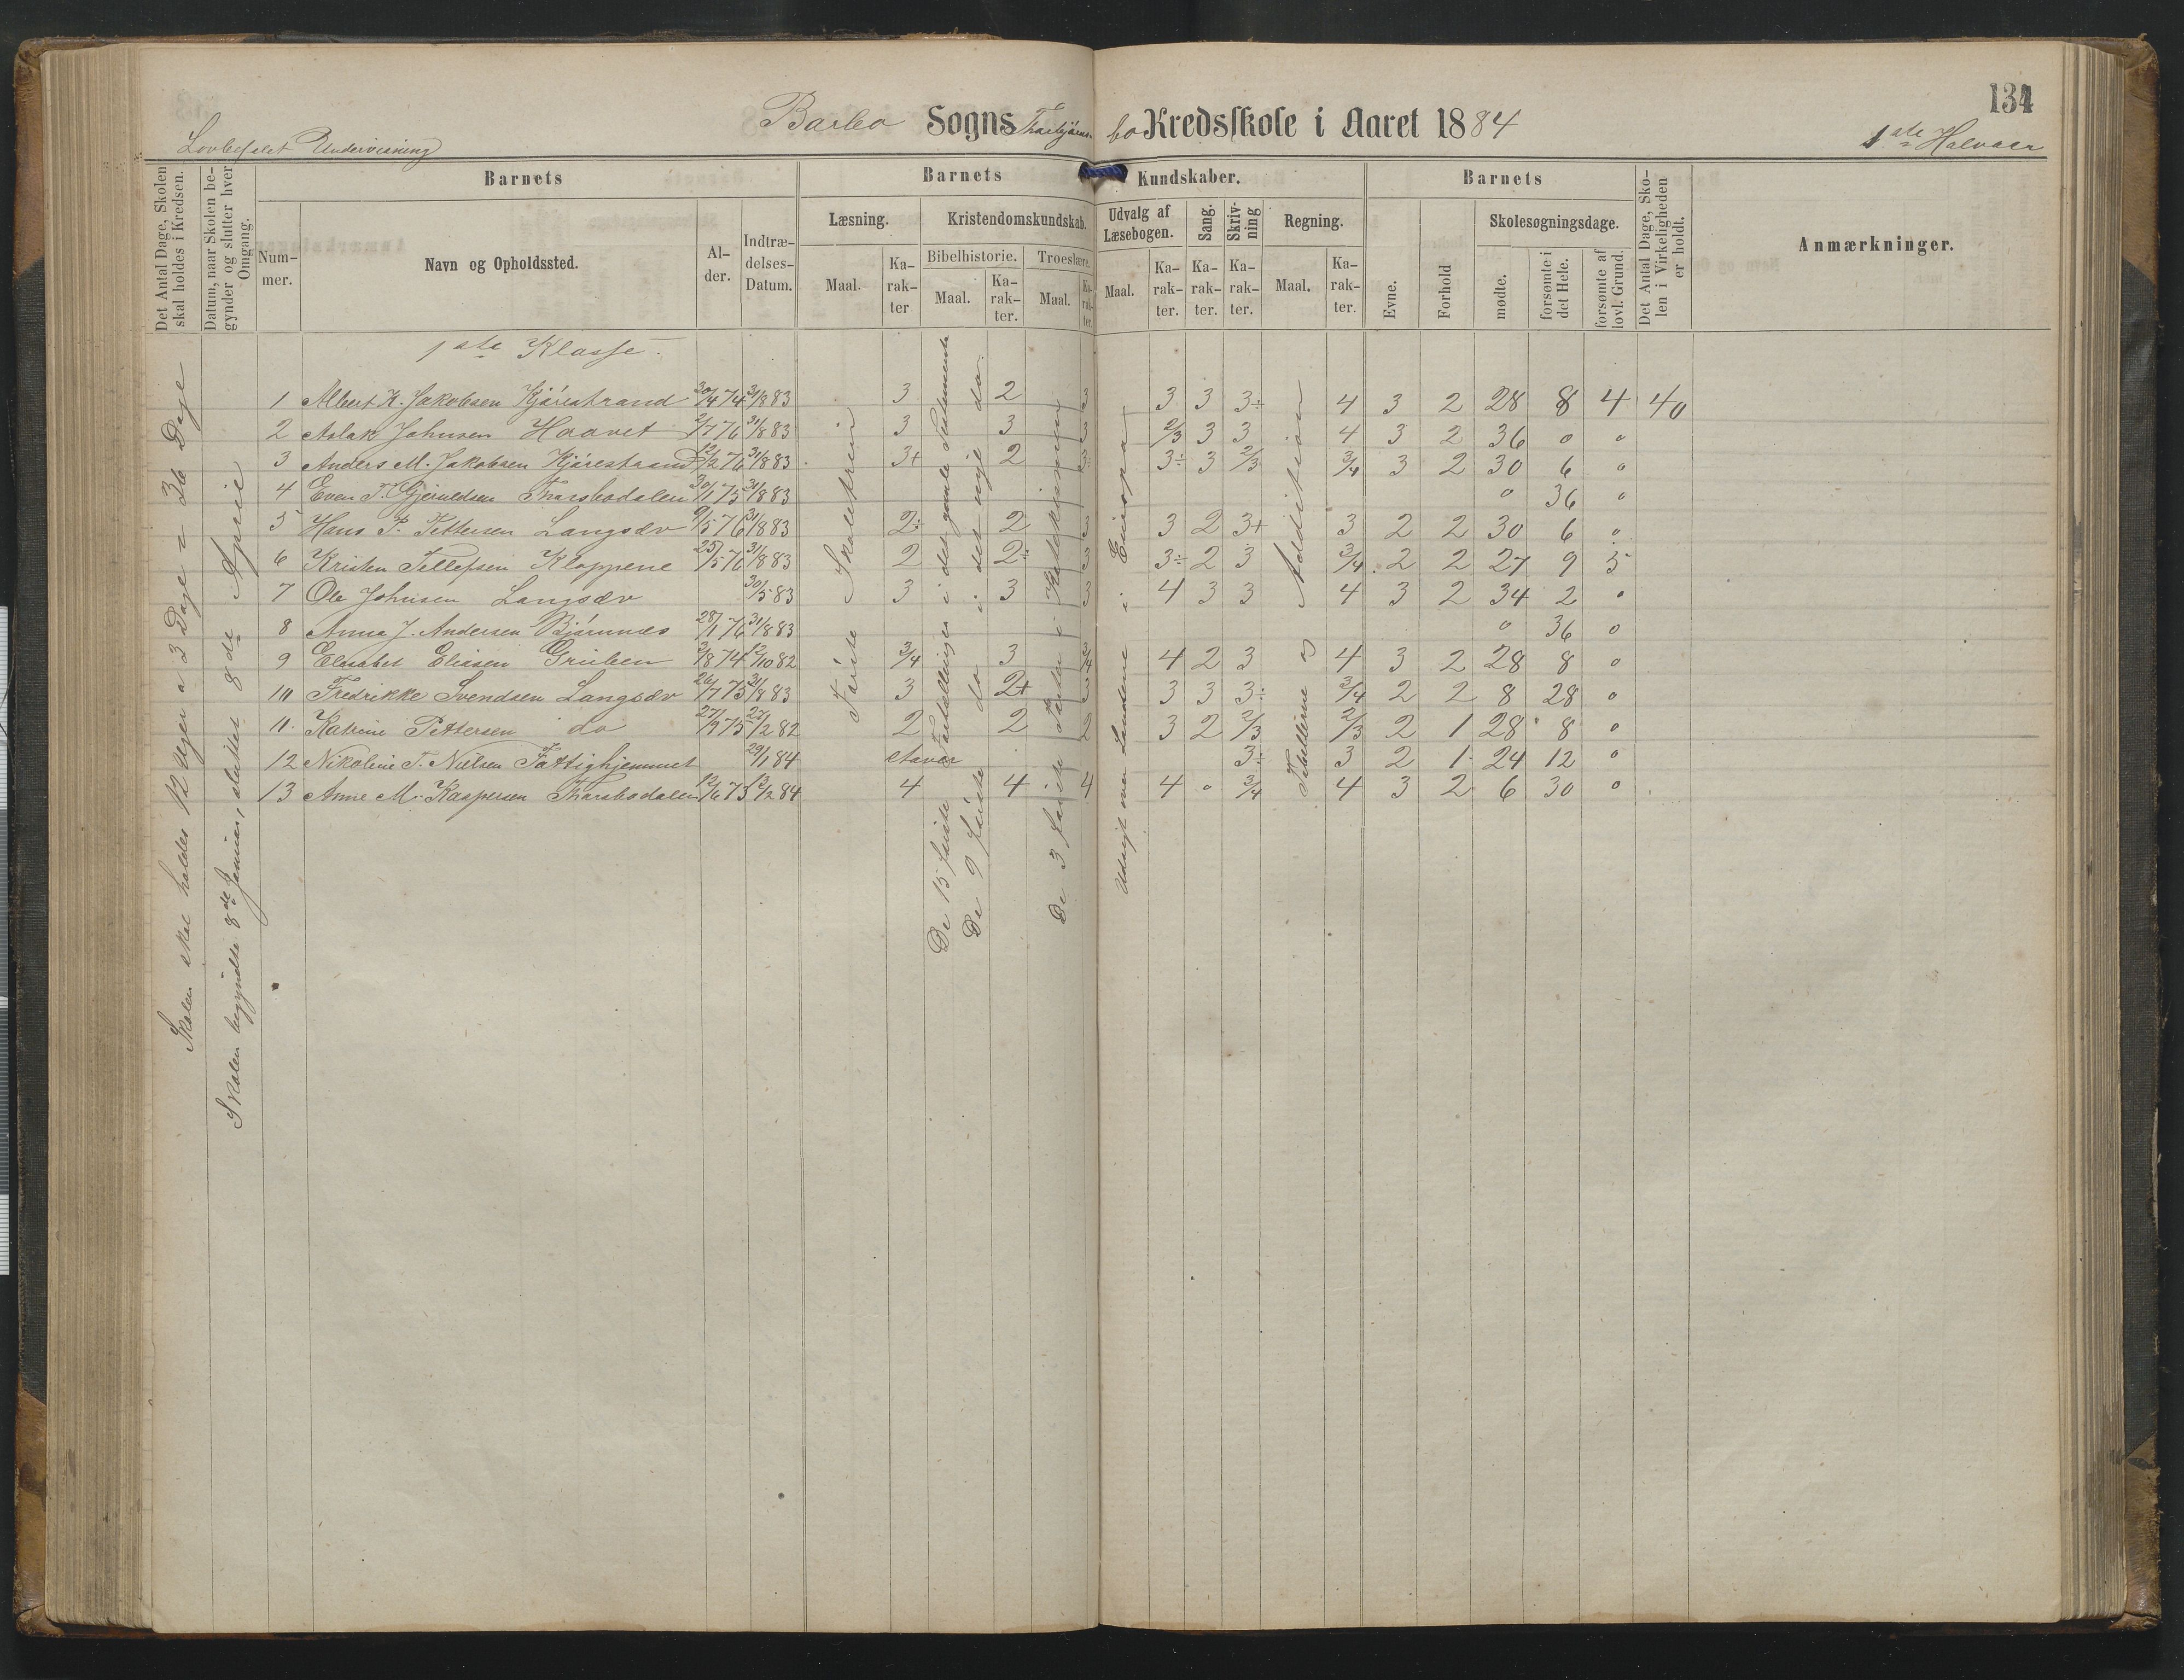 134
Barbo Sogns Tharbjørns- bo Kredsskole i Aaret 1884
Lovbefalet Undervisning
1ste Halvaar
Det Antal Dage, Skolen skal holdes i Kredsen.
Datum, naar Skolen begynder og slutter hver Omgang.
Barnets
Nummer.
Navn og Opholdssted.
Alder.
Indtrædelses-Datum.
Barnets Kundskaber.
Læsning.
Maal.
Karakter
Kristendomskundskab.
Bibelhistorie.
Maal.
Karakter.
Troeslære.
Maal.
Karakter.
Udvalg af Læsebogen.
Maal.
Karakter.
Sang.
Karakter.
Skrivning
Karakter.
Regning.
Maal.
Karakter.
Barnets
Evne.
Forhold
Skolesøgningsdage.
mødte.
forsømte i det Hele.
forsømte af lovl. Grund.
Det Antal Dage, Skolen i Virkeligheden er holdt.
Anmærkninger.
Skolen skal holdes 12 Uger a 3 Dage = 36 Dage
Skolen begyndte 8de Januar, sluttet 8de April
1ste Klasse.
Første Skaletrin
De 15 første Fortællinger i det gamle Testamente
De 9 første do i det nye do.
De 3 første Parter i Katekismen
Udsigt over Landene i Europa
Tabellerne og Addition
1 Albert K. Jakobsen Kjørestrand 30/4 74 31/8 83 3 2 3 3 3 3÷ 4 3 2 28 8 4 40
2 Aslak Johnsen Haavet 2/7 76 31/8 83 3 3 3 2/3 3 3 4 3 2 36 0 0
3 Anders M. Jakobsen Kjørestrand 12/2 76 31/8 83 3+ 2 3÷ 3÷ 3 2/3 3/4 3 2 30 6 0
4 Even T. Gjeruldsen Tharsbodalen 30/1 75 31/8 83 0 36 0
5 Hans P. Pettersen Langsæv 9/5 76 31/8 83 2÷ 2 3 3 2 3+ 3 2 2 30 6 0
6 Kristen Tellefsen Kloppene 25/5 76 31/8 83 2 2÷ 3 3÷ 2 3 3/4 2 2 27 9 5
7 Ole Johnsen Langsæv 30/5 83 3 3 3 4 3 3 4 3 2 34 2 0
8 Anna J. Andersen Bjørnnes 28/1 76 31/8 83 0 36 0
9 Elisabet Eliasen Gruben 3/8 74 12/10 82 3/4 3 3/4 4 2 3 4 3 2 28 8 0
10 Fredrikke Svendsen Langsæv 26/7 75 31/8 83 3 2+ 3 3 3 3÷ 3/4 2 2 8 28 0
11 Katrine Pettersen do 27/9 75 27/2 82 2 2 2 3 2 2/3 2/3 2 1 28 8 0
12 Nikoline T. Nielsen Fattighjemmet 29/1 84 staver 3÷ 3 2 1 24 12 0
13 Anne M. Kaspersen Tharsbodalen 12/6 75 13/2 84 4 4 4 4 0 3/4 4 3 2 6 30 0